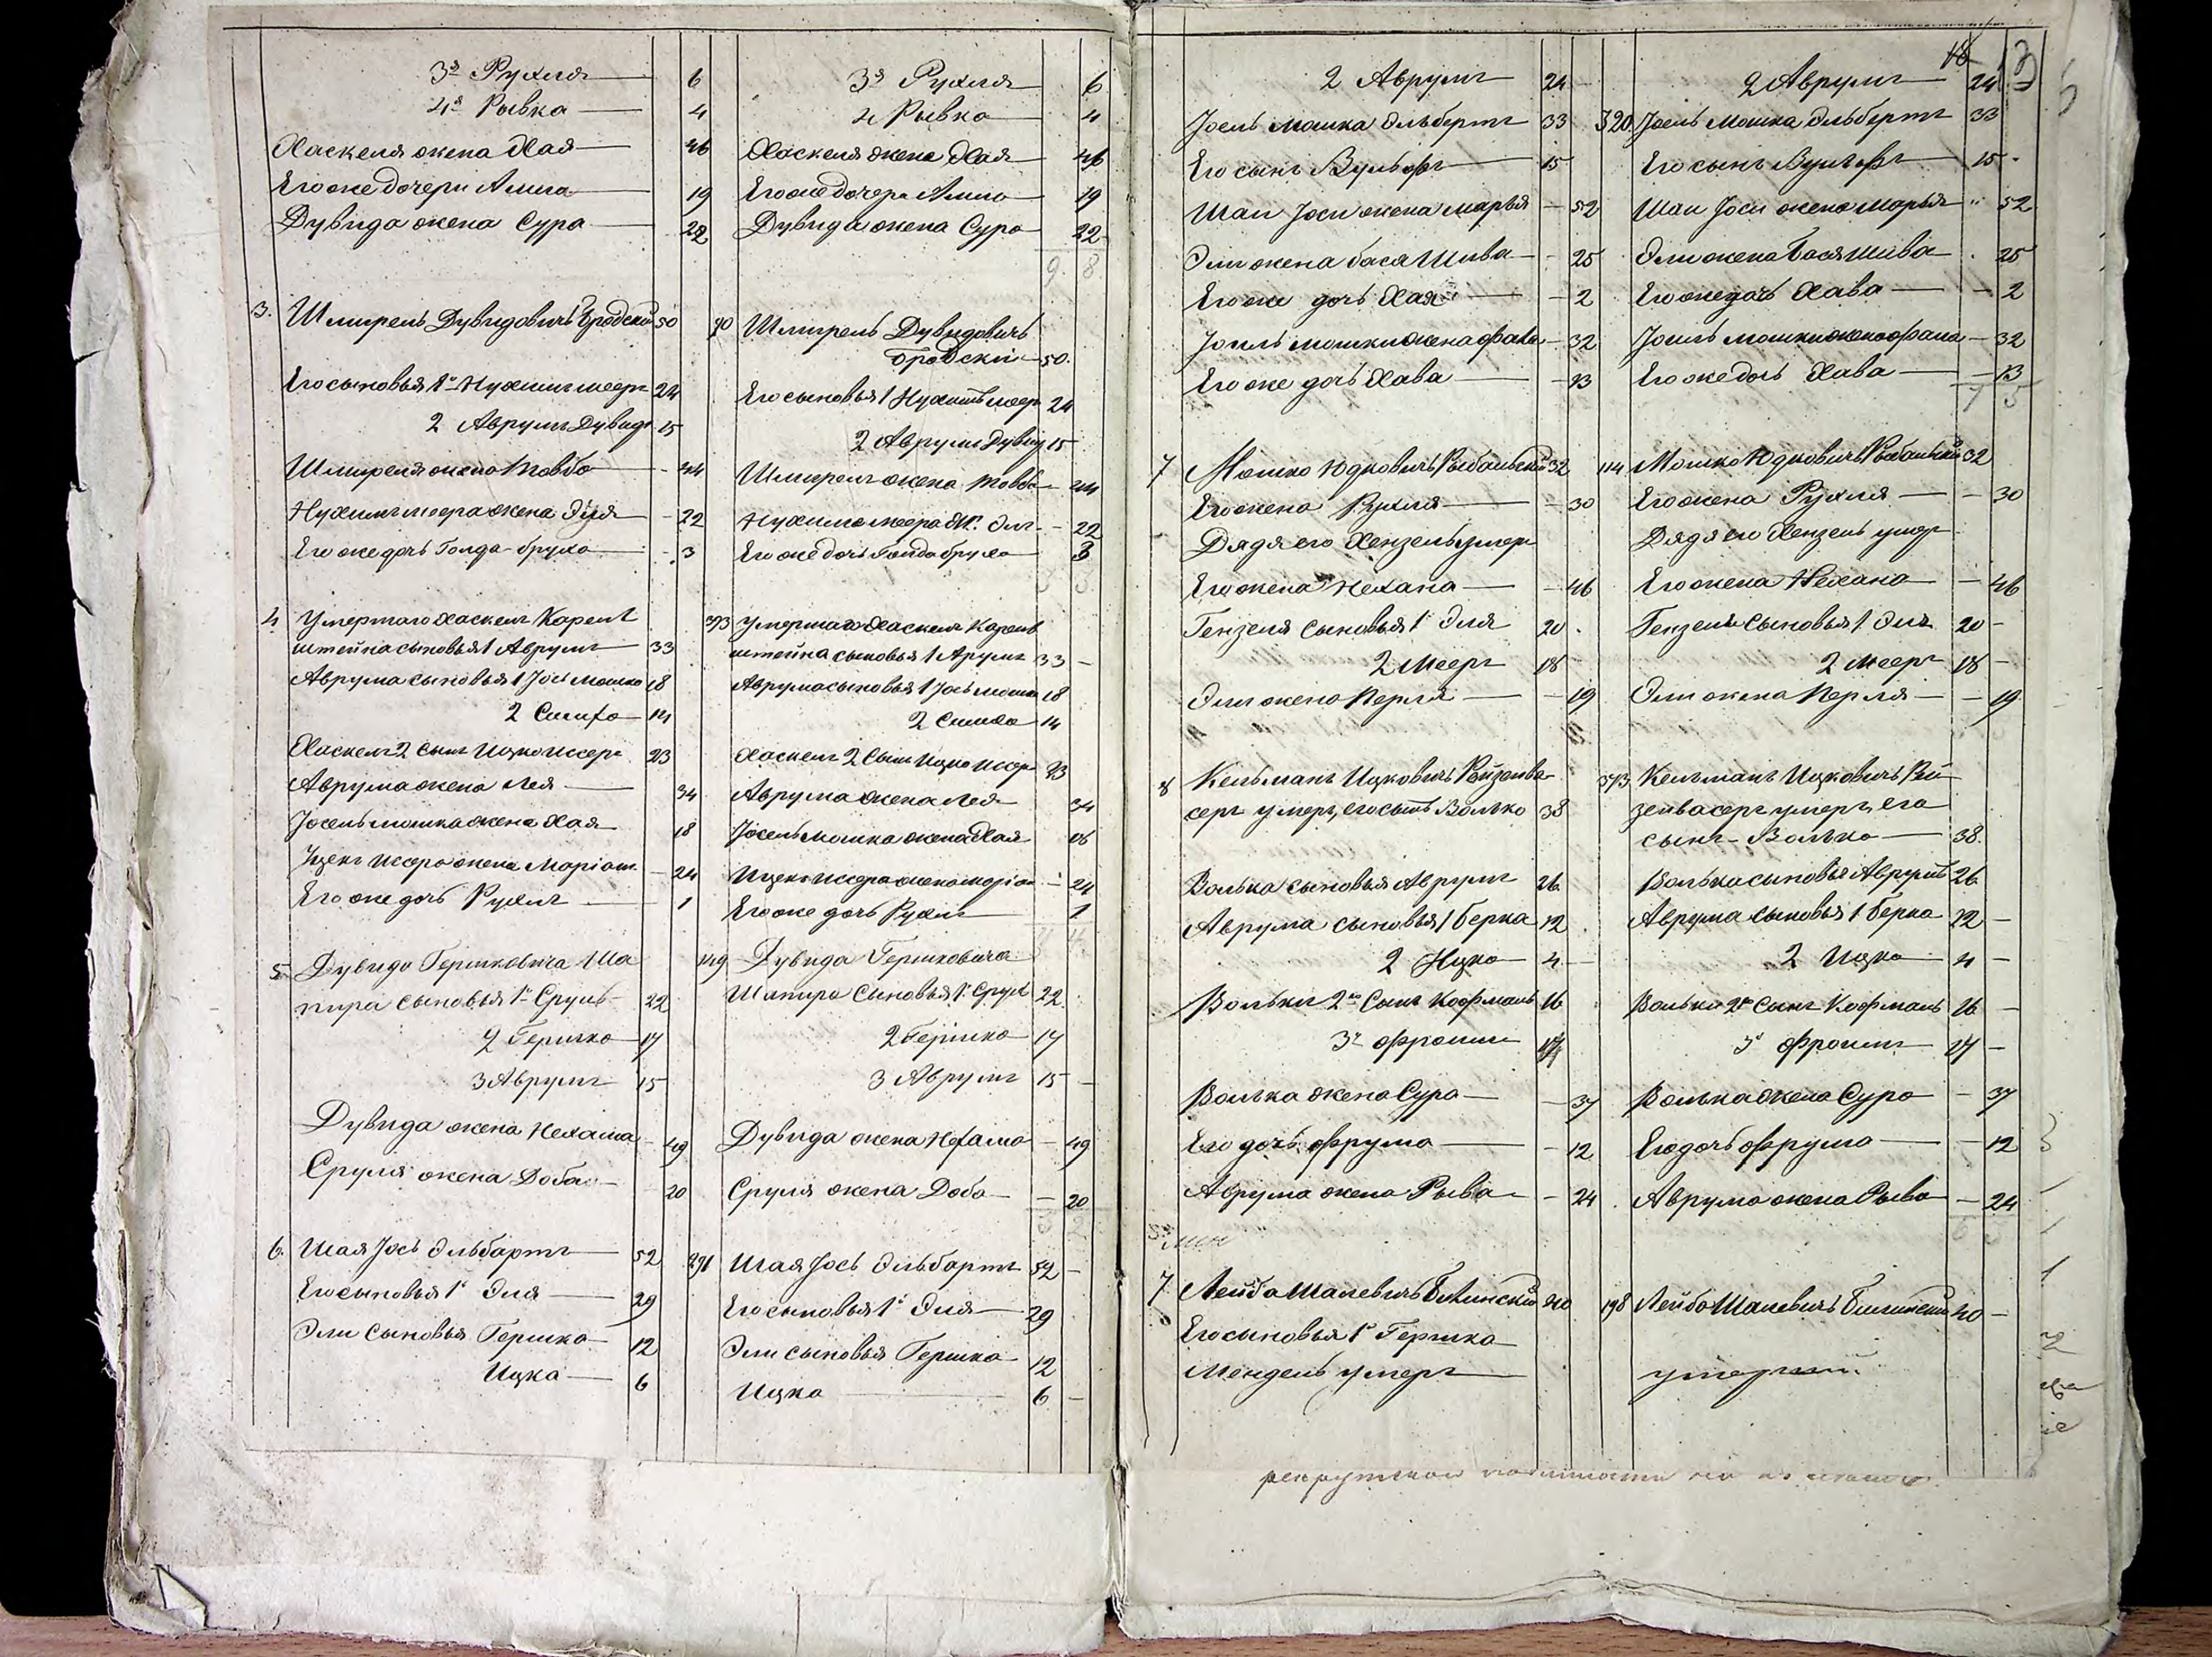 3я Рухля — 6
4я Рывка — 4
Хаскеля жена Хая — 46
Его же дочери Алта — 19
Дувида жена Сура — 22
3. Шмирель Дувидовичъ Бродский 50
Его сыновья 1й Нухимъ Меер 24
2 Аврумъ Дувид 15
Шмиреля жена Товба — 44
Нухимъ Меера жена Эля — 22
Его же дочь Голда-Бруха — 3
4 Умершаго Хаскеля Карен
штейна сыновья 1 Аврумъ 33
Аврума сыновья 1 Йось Мошко 18
2 Симха 14
Хаскеля 2 сынъ Ицко Иссер 23
Аврума жена Лея — 34
Йосель Мошка жена Хая 18
Ицека Иссера жена Маріам — 24
Его же дочь Рухля — 1
5 Дувида Гершковича Ша
пира сыновья 1й Сруль 22
2 Гершко 17
3 Аврумъ 15
Дувида жена Нехама — 49
Сруля жена Доба — 20
6. Шая Йось Эльбартъ 52
Его сыновья 1й Эля — 29
Эли сыновья Гершко 12
Ицка — 6
3я Рухля 6
4 Рывка 4
Хаскеля жена Хая — 46
Его же дочери Алта — 19
Дувида жена Сура 22
9. 8
70 Шмирель Дувидовичъ
Бродскій 50.
Его сыновья 1 Нухимъ Меер 24
2 Аврумъ Дувид 15
Шмиреля жена Товба — 44
Нухима Меера ж. Эля — 22
Его же дочь Голда Бруха 3
393 Умершаго Хаскеля Карен
штейна сыновья 1 Арумъ 33 —
Аврума сыновья 1 Йось Мошко 18
2 Симха 14
Хаскеля 2 сынъ Ицко Иссер 23
Аврума жена Лея 34
Йосель Мошка жена Хая 18
Ицека Иссера жена Маріам — 24
Его же дочь Рухля 1
149 Дувида Гершковича
Шапира сыновья 1й Сруль 22
2 Гершко 17
3 Аврумъ 15 —
Дувида жена Нехама — 49
Сруля жена Доба — 20
291 Шая Йось Эльбартъ 52 —
Его сыновья 1й Эля — 29
Эли сыновья Гершко 12
Ицко 6 —
2 Аврумъ 24
Йосель Мошка Эльбертъ 33
Его сынъ Вульфъ — 15
Шаи Йоси жена Марья — 52
Эли жена Бася Шива — 25
Его же дочь Хая — 2
Йосель Мошки жена Фаля — 32
Его же дочь Хава — 13
7 Мошко Юдковичъ Рыбальский 32
Его жена Рухля — 30
Дядя его Хензель умер
Его жена Нехама — 46
Гензеля сыновья 1й Эля 20
2 Меерг 18
Эли жена Перля — 19
8 Кельманъ Ицковичъ Рейзенва
серъ умеръ, его сынъ Волько 38
Волька сыновья Аврумъ 26
Аврума сыновья 1 Берка 12
2 Ицко 4 —
Вольки 2й сынъ Кофмань 16
3й Фроимъ 17
Волька жена Сура — 37
Его дочь Фрума — 12
Аврума жена Рыва — 24
7 Лейба Шалевичъ Билинский 40
Его сыновья 1й Гершко
Мендель умеръ
2 Аврумъ 24
320 Йосель Мошка Эльбертъ 33
Его сынъ Вульфъ 15
Шаи Йоси жена Марья 52
Эли жена Бася Шива 25
Его же дочь Хава — 2
Йосель Мошки жена Фаля — 32
Его же дочь Хава — 13
7 5
114 Мошко Юдковичъ Рыбальский 32
Его жена Рухля — 30
Дядя его Хензель умер
Его жена Нехама — 46
Гензеля сыновья 1 Эля 20 —
2 Меер 18 —
Эли жена Перля — 19
373 Кельманъ Ицковичъ Рей
зенвасеръ умеръ, его
сынъ Волько — 38.
Волька сыновья Аврумъ 26
Аврума сыновья 1 Берко 12 —
2 Ицко 4 —
Вольки 2й сынъ Кофмань 16 —
3й Фроимъ 17 —
Волька жена Сура — 37
Его дочь Фрума — 12
Аврума жена Рыва — 24
198 Лейба Шалевичъ Билинский 40 —
умерший